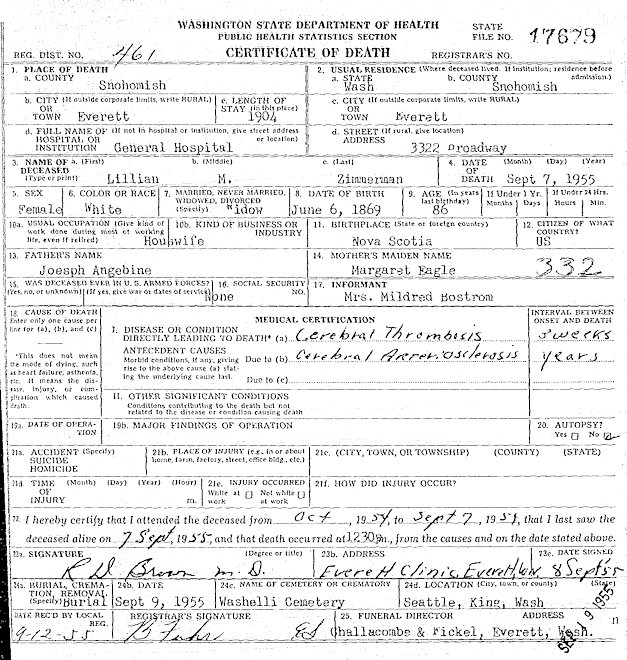 WASHINGTON STATE DEPARTMENT OF HEALTH
PUBLIC HEALTH STATISTICS SECTION
CERTIFICATE OF DEATH
STATE FILE NO. 17679
REG. DIST. NO. 461
REGISTRAR'S NO.
1. PLACE OF DEATH
a. COUNTY
Snohomish
2. USUAL RESIDENCE (Where deceased lived. If institution; residence before admission.)
a. STATE Wash
b. COUNTY Snohomish
b. CITY (If outside corporate limits, write RURAL) OR TOWN Everett
c. LENGTH OF STAY (in this place) 1904
c. CITY (If outside corporate limits, write RURAL) OR TOWN Everett
d. FULL NAME OF (If not in hospital or institution, give street address or location) HOSPITAL OR INSTITUTION General Hospital
d. STREET (If rural, give location) ADDRESS 3322 Broadway
3. NAME OF DECEASED (Type or print)
a. (First) Lillian
b. (Middle) M.
c. (Last) Zimmerman
4. DATE OF DEATH (Month) (Day) (Year) Sept 7, 1955
5. SEX Female
6. COLOR OR RACE White
7. MARRIED, NEVER MARRIED, WIDOWED, DIVORCED (Specify) Widow
8. DATE OF BIRTH June 6, 1869
9. AGE (In years last birthday) 86
If Under 1 Yr. Months Days
If Under 24 Hrs. Hours Min.
10a. USUAL OCCUPATION (Give kind of work done during most of working life, even if retired) Houswife
10b. KIND OF BUSINESS OR INDUSTRY
11. BIRTHPLACE (State or foreign country) Nova Scotia
12. CITIZEN OF WHAT COUNTRY? US
13. FATHER'S NAME Joesph Angebine
14. MOTHER'S MAIDEN NAME Margaret Eagle
332
15. WAS DECEASED EVER IN U.S. ARMED FORCES? (Yes, no, or unknown) (If yes, give war or dates of service)
16. SOCIAL SECURITY NO.
None
17. INFORMANT Mrs. Mildred Bostrom
18. CAUSE OF DEATH
Enter only one cause per line for (a), (b), and (c)
*This does not mean the mode of dying, such as heart failure, asthenia, etc. It means the disease, injury, or complication which caused death.
MEDICAL CERTIFICATION
INTERVAL BETWEEN ONSET AND DEATH
I. DISEASE OR CONDITION DIRECTLY LEADING TO DEATH* (a) Cerebral Thrombosis 3 weeks
ANTECEDENT CAUSES
Morbid conditions, if any, giving rise to the above cause (a) stating the underlying cause last.
Due to (b) Cerebral Arteriosclerosis years
Due to (c)
II. OTHER SIGNIFICANT CONDITIONS
Conditions contributing to the death but not related to the disease or condition causing death
19a. DATE OF OPERATION
19b. MAJOR FINDINGS OF OPERATION
20. AUTOPSY? Yes No
21a. ACCIDENT (Specify) SUICIDE HOMICIDE
21b. PLACE OF INJURY (e.g., in or about home, farm, factory, street, office bldg., etc.)
21c. (CITY, TOWN, OR TOWNSHIP) (COUNTY) (STATE)
21d. TIME OF INJURY (Month) (Day) (Year) (Hour) m.
21e. INJURY OCCURRED While at work Not while at work
21f. HOW DID INJURY OCCUR?
22. I hereby certify that I attended the deceased from Oct, 1954, to Sept 7, 1955, that I last saw the
deceased alive on 7 Sept, 1955, and that death occurred at 1230 m., from the causes and on the date stated above.
23a. SIGNATURE (Degree or title) R D Brown M.D.
23b. ADDRESS Everett Clinic, Everett, Wn
23c. DATE SIGNED 8 Sept 55
24a. BURIAL, CREMATION, REMOVAL (Specify) Burial
24b. DATE Sept 9, 1955
24c. NAME OF CEMETERY OR CREMATORY Washelli Cemetery
24d. LOCATION (City, town, or county) (State) Seattle, King, Wash
DATE REC'D BY LOCAL REG. 9-12-55
REGISTRAR'S SIGNATURE
25. FUNERAL DIRECTOR ADDRESS
Challacombe & Fickel, Everett, Wash.
SEP 19 1955